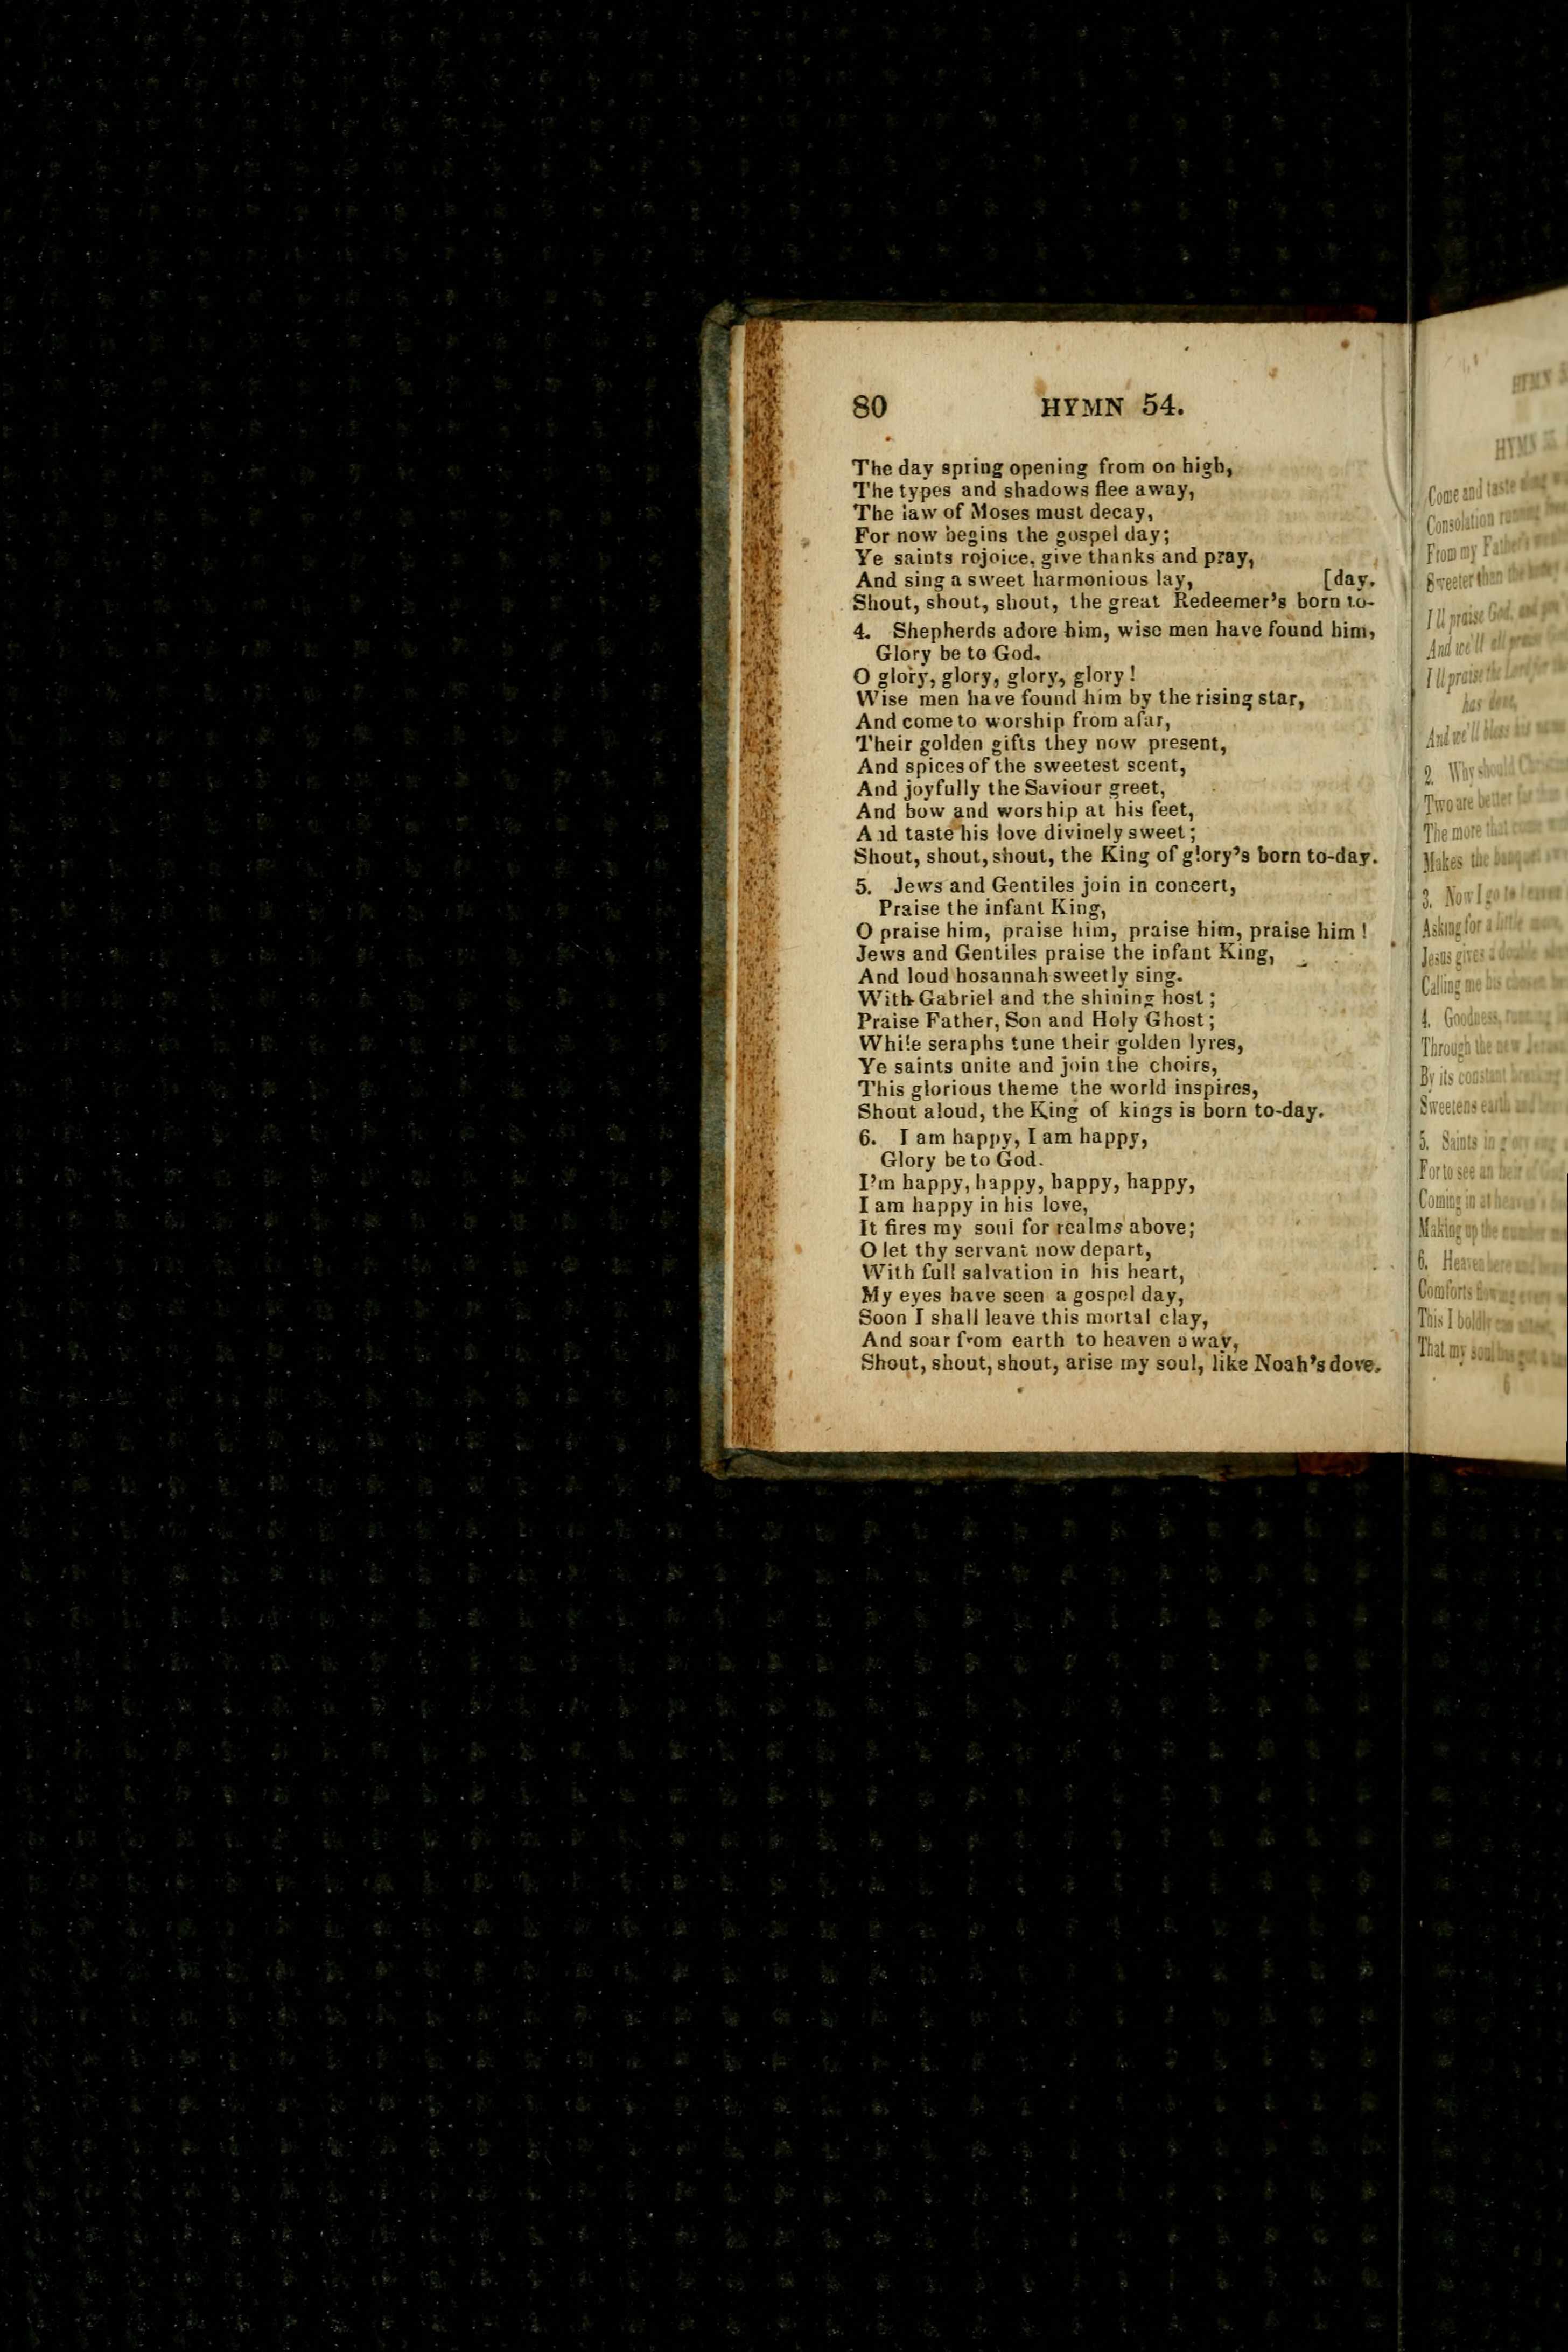 80 HYMN 54.
The day spring opening from on high,
The types and shadows flee away,
The law of Moses must decay,
For now begins the gospel day;
Ye saints rojoice, give thanks and pray,
And sing a sweet harmonious lay, [day.
Shout, shout, shout, the great Redeemer's born to-
4. Shepherds adore him, wise men have found him,
Glory be to God.
O glory, glory, glory, glory!
Wise men have found him by the rising star,
And come to worship from afar,
Their golden gifts they now present,
And spices of the sweetest scent,
And joyfully the Saviour greet,
And bow and worship at his feet,
And taste his love divinely sweet;
Shout, shout, shout, the King of glory's born to-day.
5. Jews and Gentiles join in concert,
Praise the infant King,
O praise him, praise him, praise him, praise him!
Jews and Gentiles praise the infant King,
And loud hosannah sweetly sing.
With Gabriel and the shining host;
Praise Father, Son and Holy Ghost;
While seraphs tune their golden lyres,
Ye saints unite and join the choirs,
This glorious theme the world inspires,
Shout aloud, the King of kings is born to-day.
6. I am happy, I am happy,
Glory be to God.
I'm happy, happy, happy, happy,
I am happy in his love,
It fires my soul for realms above;
O let thy servant now depart,
With full salvation in his heart,
My eyes have seen a gospel day,
Soon I shall leave this mortal clay,
And soar from earth to heaven away,
Shout, shout, shout, arise my soul, like Noah's dove.
HYMN
HYMN
Come and taste along
Consolation running
From my Father's
Sweeter than the
I'll praise God, and
And we'll all praise
I'll praise the Lord for
has done,
And we'll bless his name
2. Why should
Two are better far than
The more that come
Makes the banquet
3. Now I go to
Asking for a little
Jesus gives a double
Calling me his chosen
4. Goodness, running
Through the new
By its constant
Sweetens earth and
5. Saints in glory
For to see an heir
Coming in at heaven's
Making up the number
6. Heaven here and
Comforts flowing
This I boldly can
That my soul has got a
6